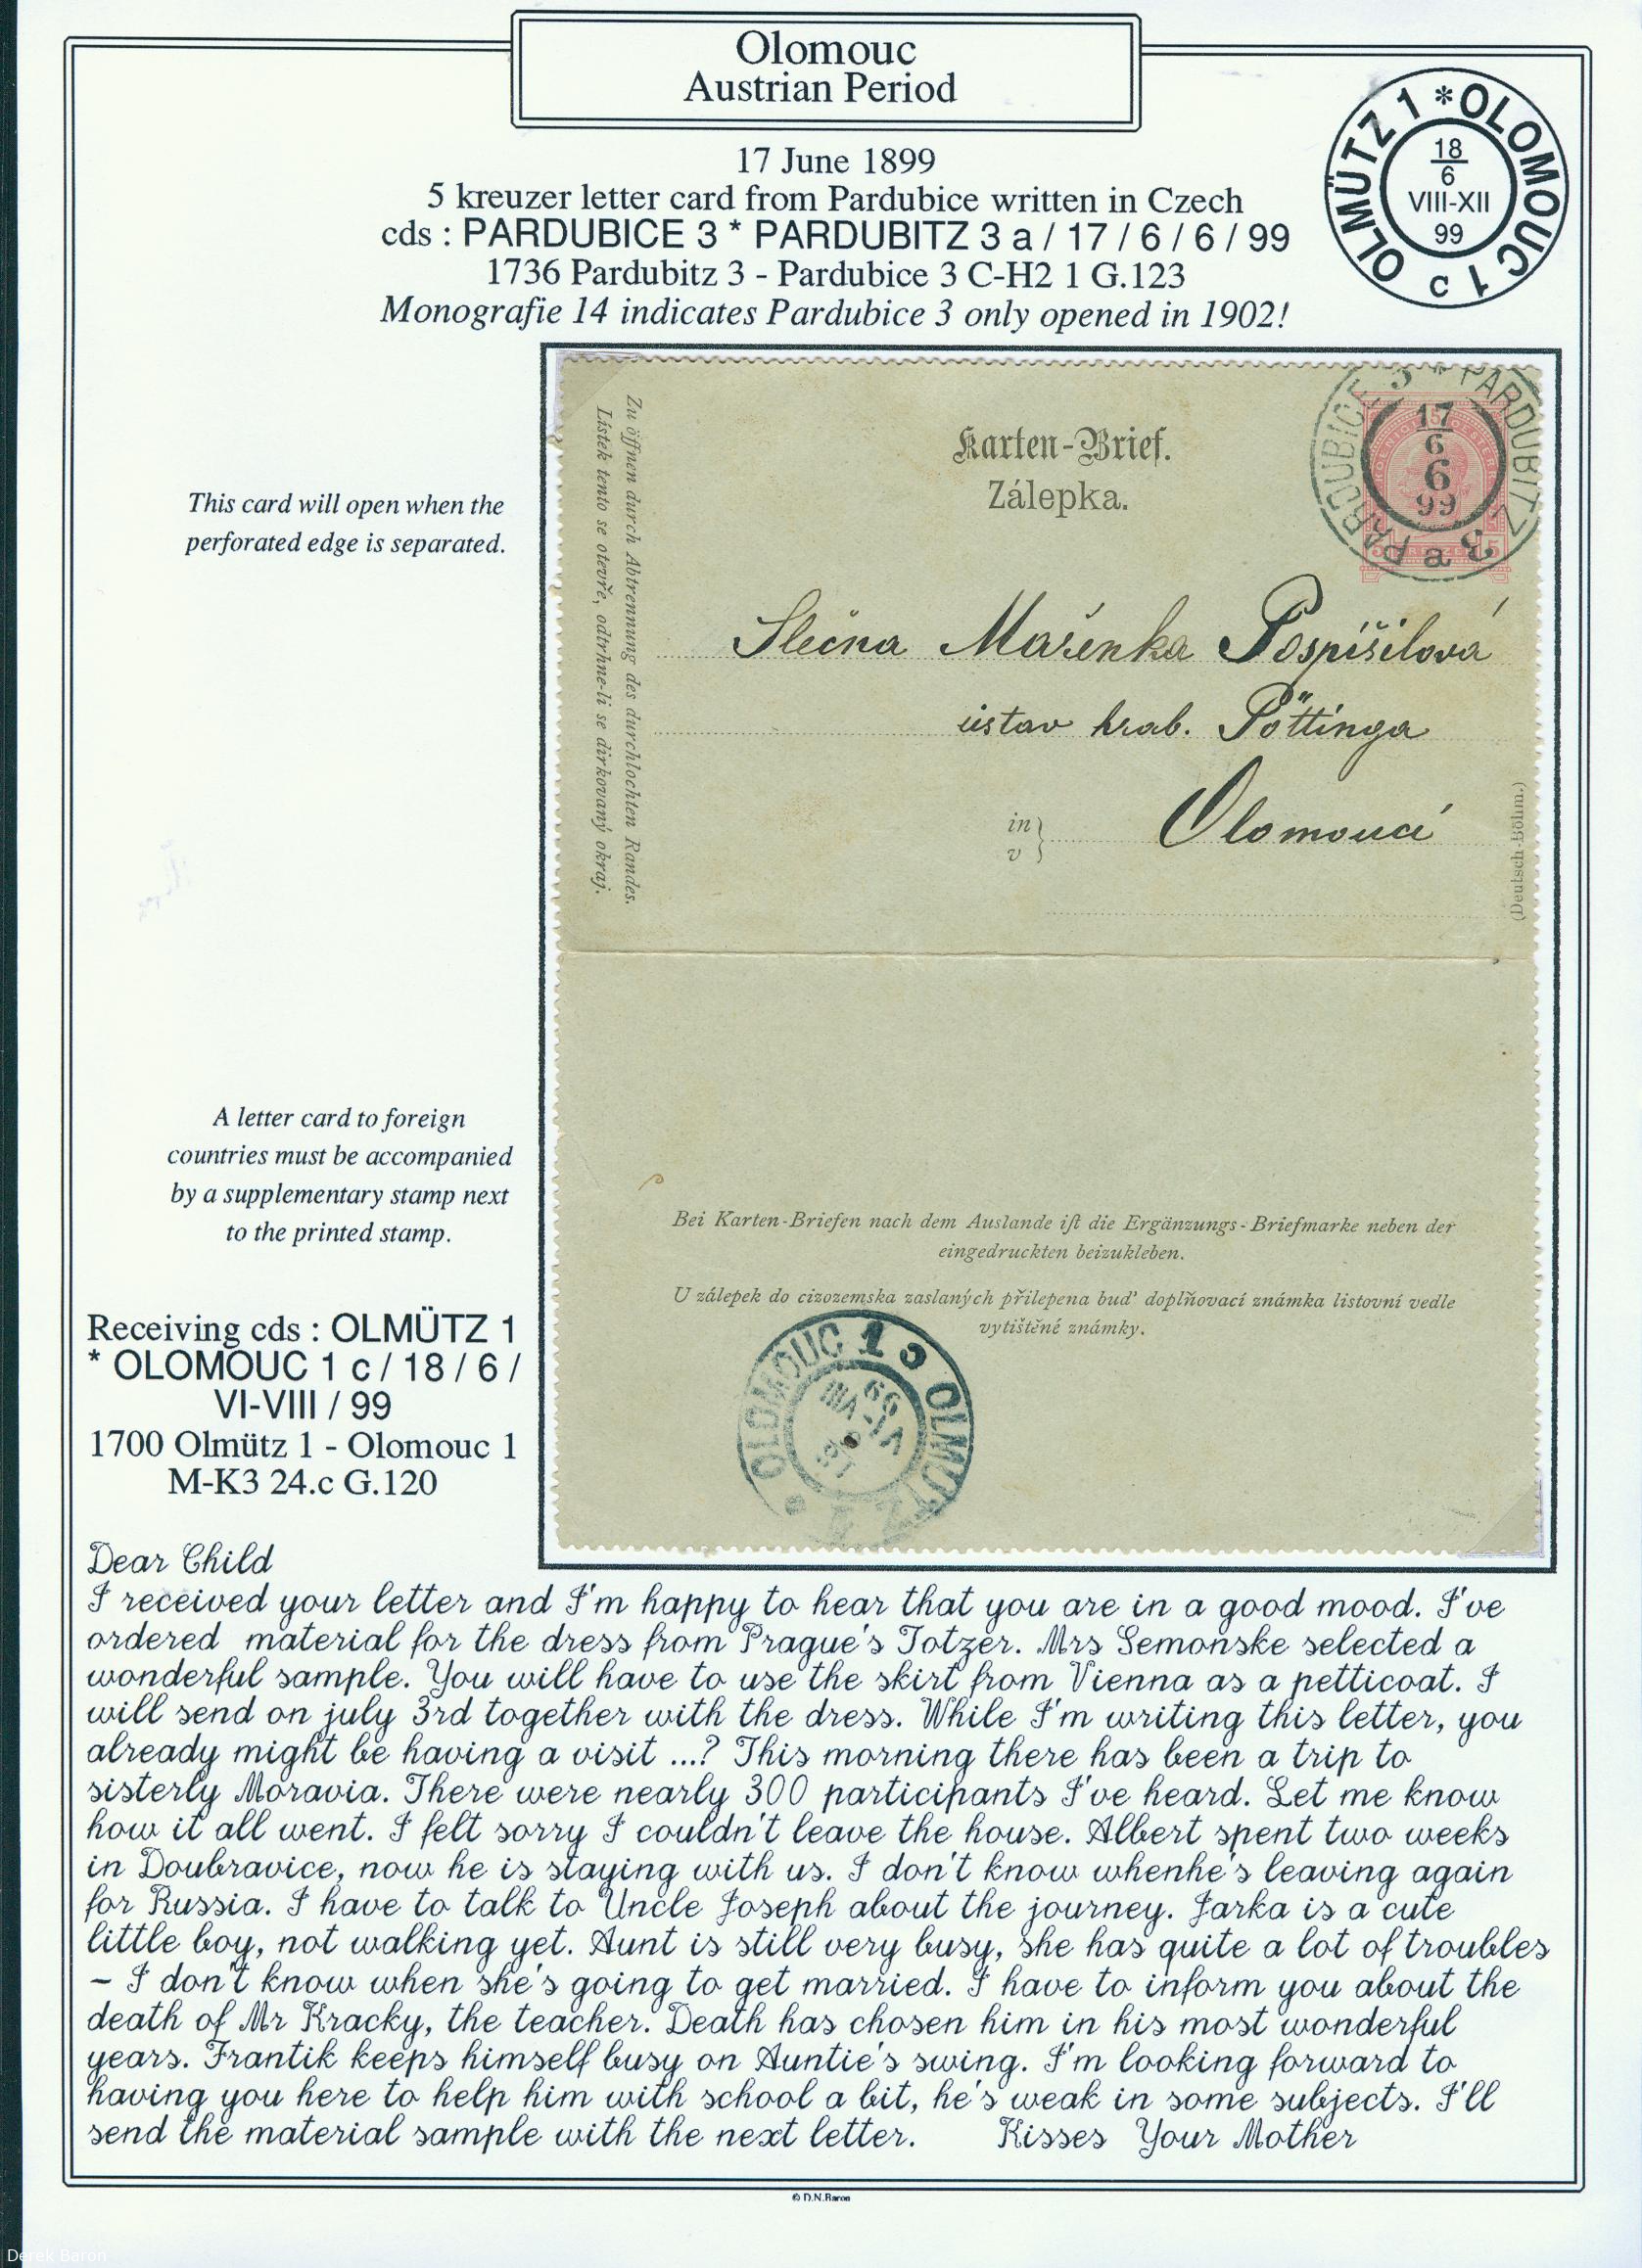 Olomouc
Austrian Period
17 June 1899
5 kreuzer letter card from Pardubice written in Czech
cds : PARDUBICE 3 * PARDUBITZ 3 a / 17 / 6 / 6 / 99
1736 Pardubitz 3 - Pardubice 3 C-H2 1 G.123
Monografie 14 indicates Pardubice 3 only opened in 1902!
OLMÜTZ 1 * OLOMOUC 1 c
18
6
VIII-XII
99
Zu öffnen durch Abtrennung des durchlochten Randes.
Lístek tento se otevře, odtrhne-li se dirkovaný okraj.
Karten-Brief.
Zálepka.
PARDUBICE 3 * PARDUBITZ 3 a
17
6
6
99
Slečna Mařenka Pospíšilová
ústav hrab. Pöttinga
in
v
Olomouci
(Deutsch-Böhm.)
This card will open when the
perforated edge is separated.
A letter card to foreign
countries must be accompanied
by a supplementary stamp next
to the printed stamp.
Bei Karten-Briefen nach dem Auslande ist die Ergänzungs-Briefmarke neben der
eingedruckten beizukleben.
U zálepek do cizozemska zaslaných přilepena buď doplňovací známka listovní vedle
vytištěné známky.
* OLOMOUC 1 c OLMÜTZ
VI-VIII
99
Receiving cds : OLMÜTZ 1
* OLOMOUC 1 c / 18 / 6 /
VI-VIII / 99
1700 Olmütz 1 - Olomouc 1
M-K3 24.c G.120
Dear Child
I received your letter and I'm happy to hear that you are in a good mood. I've
ordered material for the dress from Prague's Totzer. Mrs Semonske selected a
wonderful sample. You will have to use the skirt from Vienna as a petticoat. I
will send on july 3rd together with the dress. While I'm writing this letter, you
already might be having a visit ...? This morning there has been a trip to
sisterly Moravia. There were nearly 300 participants I've heard. Let me know
how it all went. I felt sorry I couldn't leave the house. Albert spent two weeks
in Doubravice, now he is staying with us. I don't know whenhe's leaving again
for Russia. I have to talk to Uncle Joseph about the journey. Jarka is a cute
little boy, not walking yet. Aunt is still very busy, she has quite a lot of troubles
– I don't know when she's going to get married. I have to inform you about the
death of Mr Kracky, the teacher. Death has chosen him in his most wonderful
years. Frantik keeps himself busy on Auntie's swing. I'm looking forward to
having you here to help him with school a bit, he's weak in some subjects. I'll
send the material sample with the next letter. Kisses Your Mother
© D.N.Baron
Derek Baron